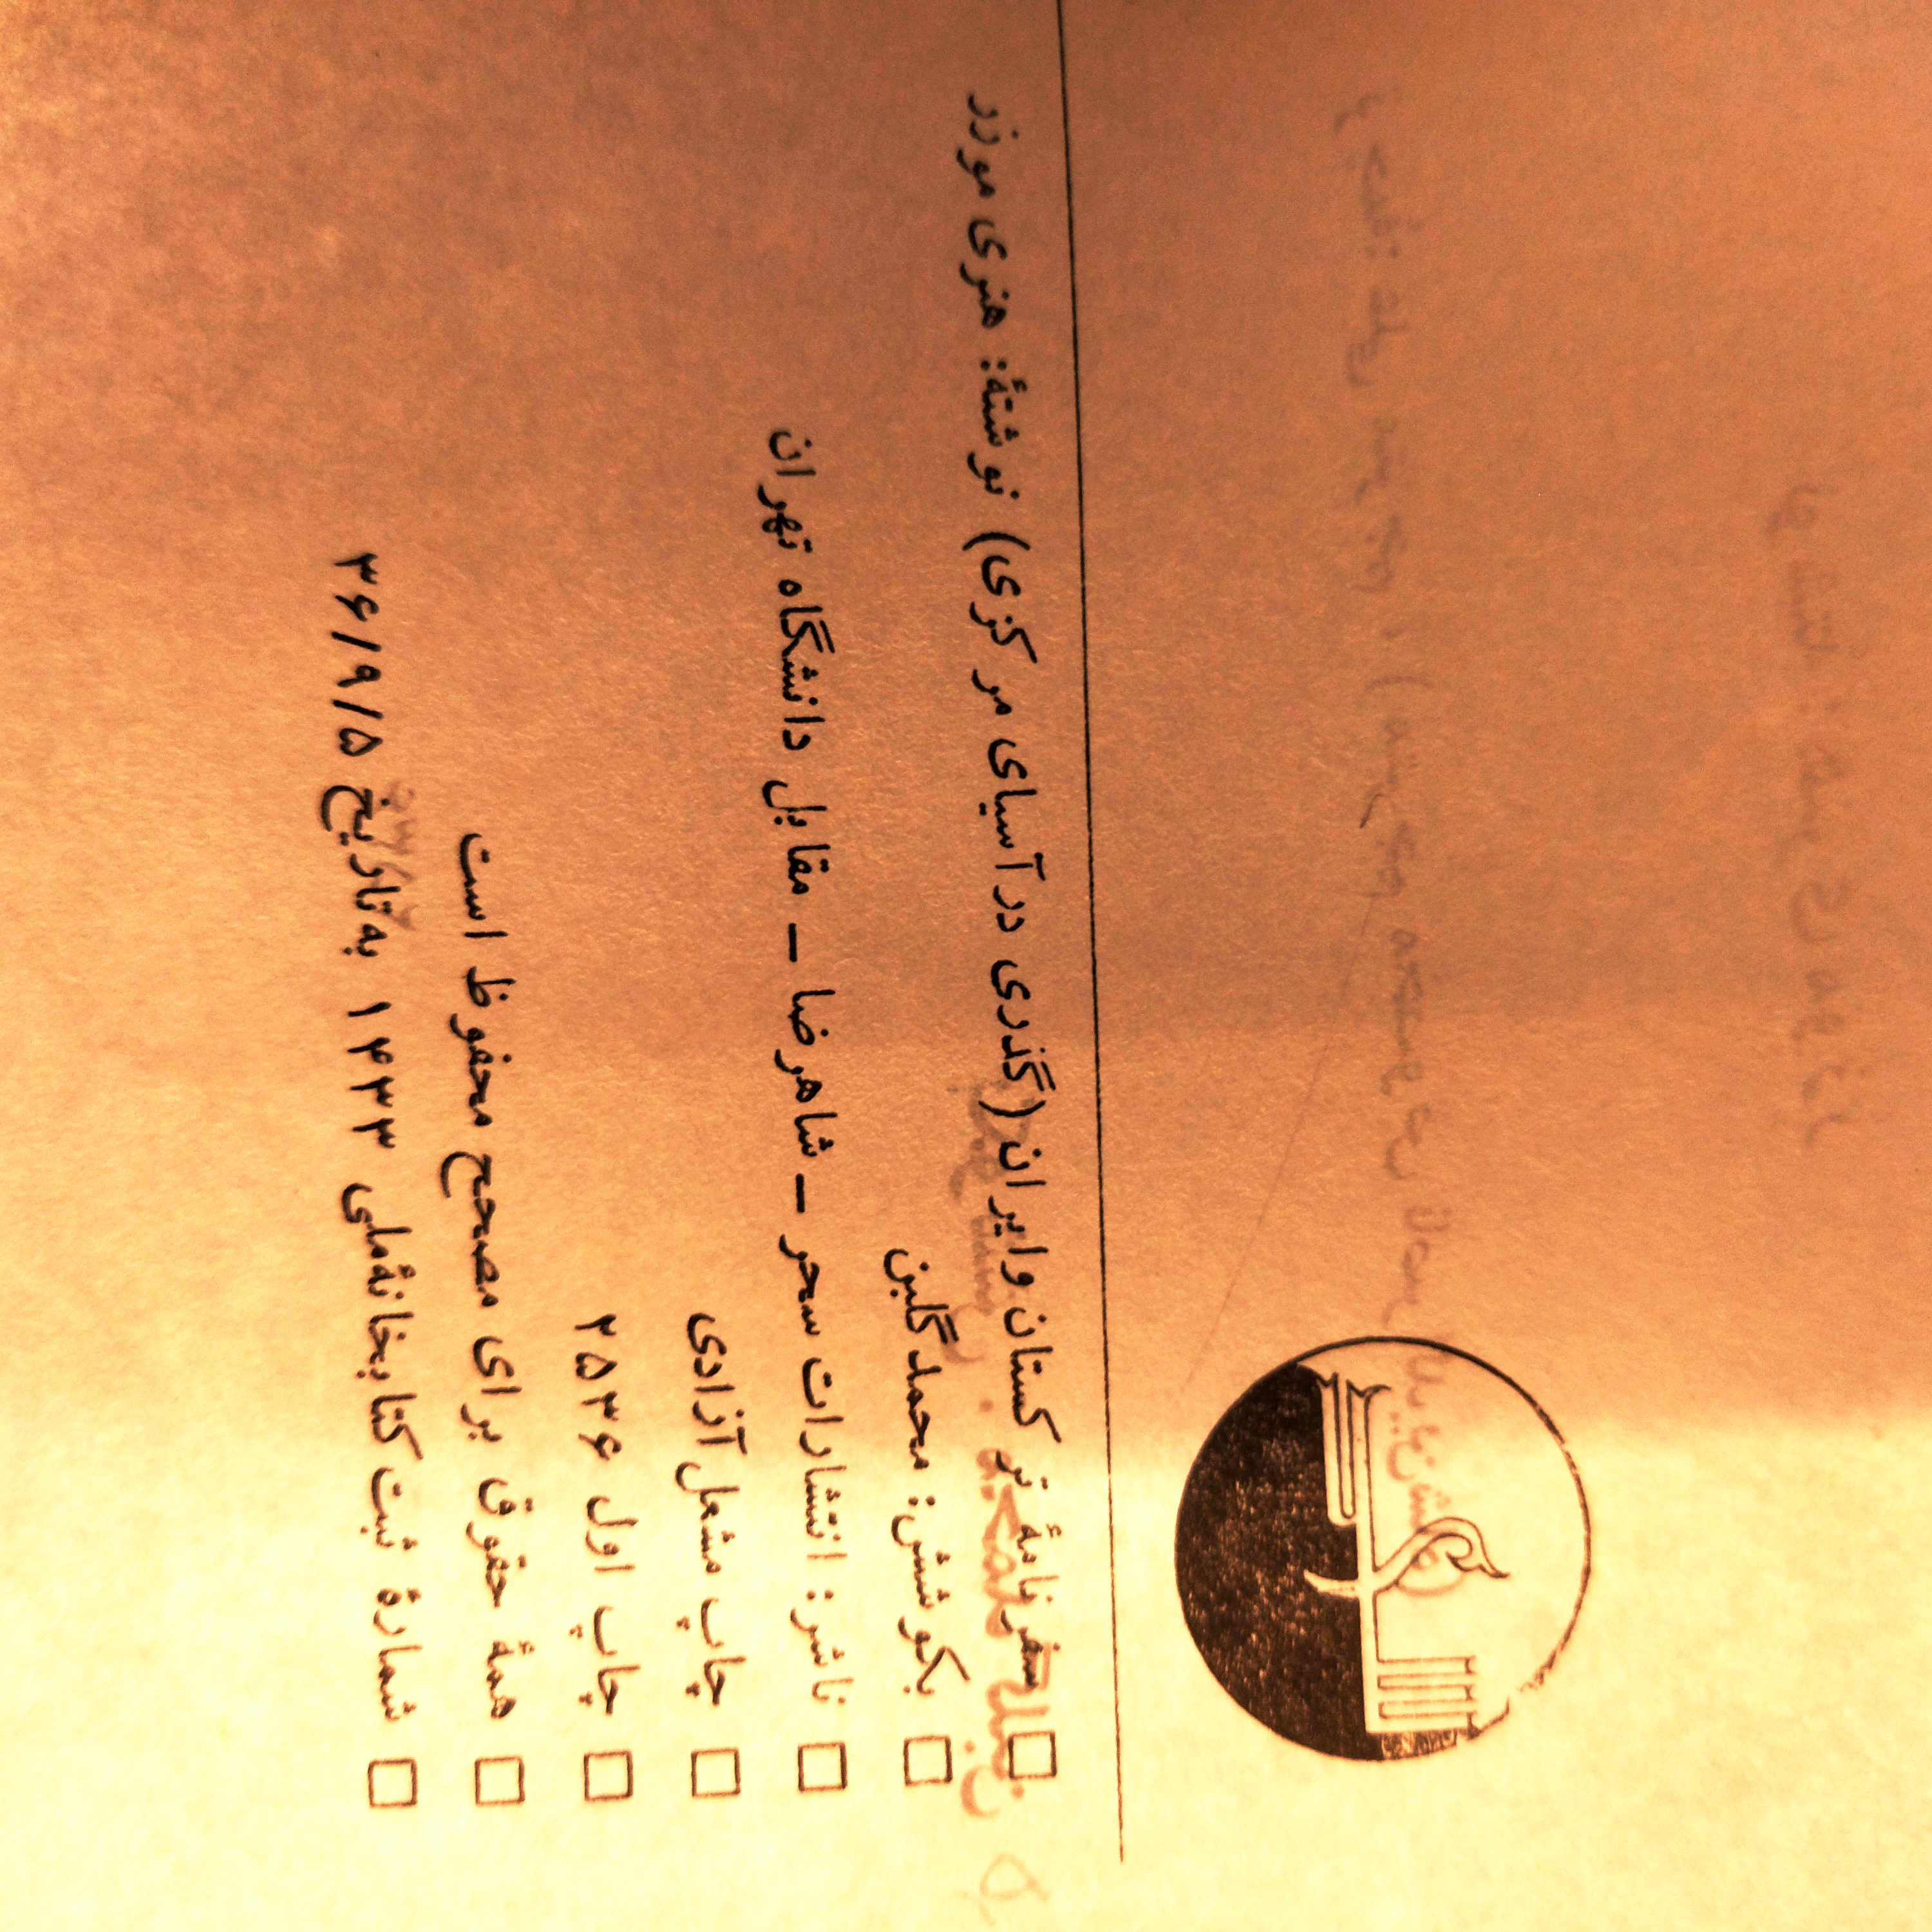 □ سفرنامهٔ ترکستان و ایران (گذری در آسیای مرکزی) نوشتهٔ: هنری موزر
□ بکوشش: محمد گلبن
□ ناشر: انتشارات سحر – شاهرضا – مقابل دانشگاه تهران
□ چاپ مشعل آزادی
□ چاپ اول ۲۵۳۶
□ همهٔ حقوق برای مصحح محفوظ است
□ شمارهٔ ثبت کتابخانهٔ ملی ۱۴۳۳ به تاریخ ۳۶/۹/۵